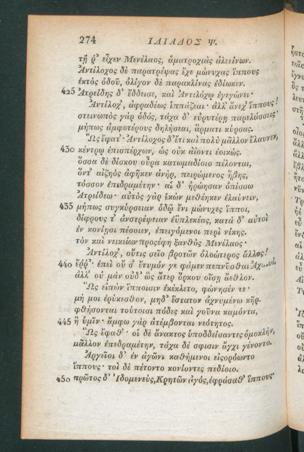 274 ΙΛΙΑΔΟΣ Ψ.
τῇ ῥ' εἶχεν Μενέλαος, ἁματροχιὰς ἀλεείνων.
Ἀντίλοχος δὲ παρατρέψας ἔχε μώνυχας ἵππους
ἐκτὸς ὁδοῦ, ὀλίγον δὲ παρακλίνας ἐδίωκεν.
425 Ἀτρείδης δ' ἔδδεισε, καὶ Ἀντιλόχῳ ἐγεγώνει·
Ἀντίλοχ', ἀφραδέως ἱππάζεαι· ἀλλ' ἄνεχ' ἵππους!
στεινωπὸς γὰρ ὁδός, τάχα δ' εὐρυτέρῃ παρελάσσεις·
μήπως ἀμφοτέρους δηλήσεαι, ἅρματι κύρσας.
Ὣς ἔφατ'· Ἀντίλοχος δ' ἔτι καὶ πολὺ μᾶλλον ἔλαυνεν,
430 κέντρῳ ἐπισπέρχων, ὡς οὐκ ἀΐοντι ἐοικώς.
ὅσσα δὲ δίσκου οὖρα κατωμαδίοιο πέλονται,
ὅντ' αἰζηὸς ἀφῆκεν ἀνήρ, πειρώμενος ἥβης,
τόσσον ἐπιδραμέτην· αἱ δ' ἠρώησαν ὀπίσσω
Ἀτρείδεω· αὐτὸς γὰρ ἑκὼν μεθέηκεν ἐλαύνειν,
435 μήπως συγκύρσειαν ὁδῷ ἔνι μώνυχες ἵπποι,
δίφρους τ' ἀνστρέψειαν ἐϋπλεκέας, κατὰ δ' αὐτοὶ
ἐν κονίῃσι πέσοιεν, ἐπειγόμενοι περὶ νίκης.
τὸν καὶ νεικείων προσέφη ξανθὸς Μενέλαος·
Ἀντίλοχ', οὔτις σεῖο βροτῶν ὀλοώτερος ἄλλος!
440 ἔῤῥ'· ἐπεὶ οὔ σ' ἔτυμόν γε φάμεν πεπνῦσθαι Ἀχαιοί.
ἀλλ' οὐ μὰν οὐδ' ὣς ἄτερ ὅρκου οἴσῃ ἄεθλον.
Ὣς εἰπὼν ἵπποισιν ἐκέκλετο, φώνησέν τε·
μή μοι ἐρύκεσθον, μηδ' ἕστατον ἀχνυμένω κῆρ.
φθήσονται τούτοισι πόδες καὶ γοῦνα καμόντα,
445 ἢ ὑμῖν· ἄμφω γὰρ ἀτέμβονται νεότητος.
Ὣς ἔφαθ'· οἱ δὲ ἄνακτος ὑποδδείσαντες ὁμοκλήν,
μᾶλλον ἐπιδραμέτην, τάχα δέ σφισιν ἄγχι γένοντο.
Ἀργεῖοι δ' ἐν ἀγῶνι καθήμενοι εἰσορόωντο
ἵππους· τοὶ δὲ πέτοντο κονίοντες πεδίοιο.
450 πρῶτος δ' Ἰδομενεύς, Κρητῶν ἀγός, ἐφράσαθ' ἵππους·